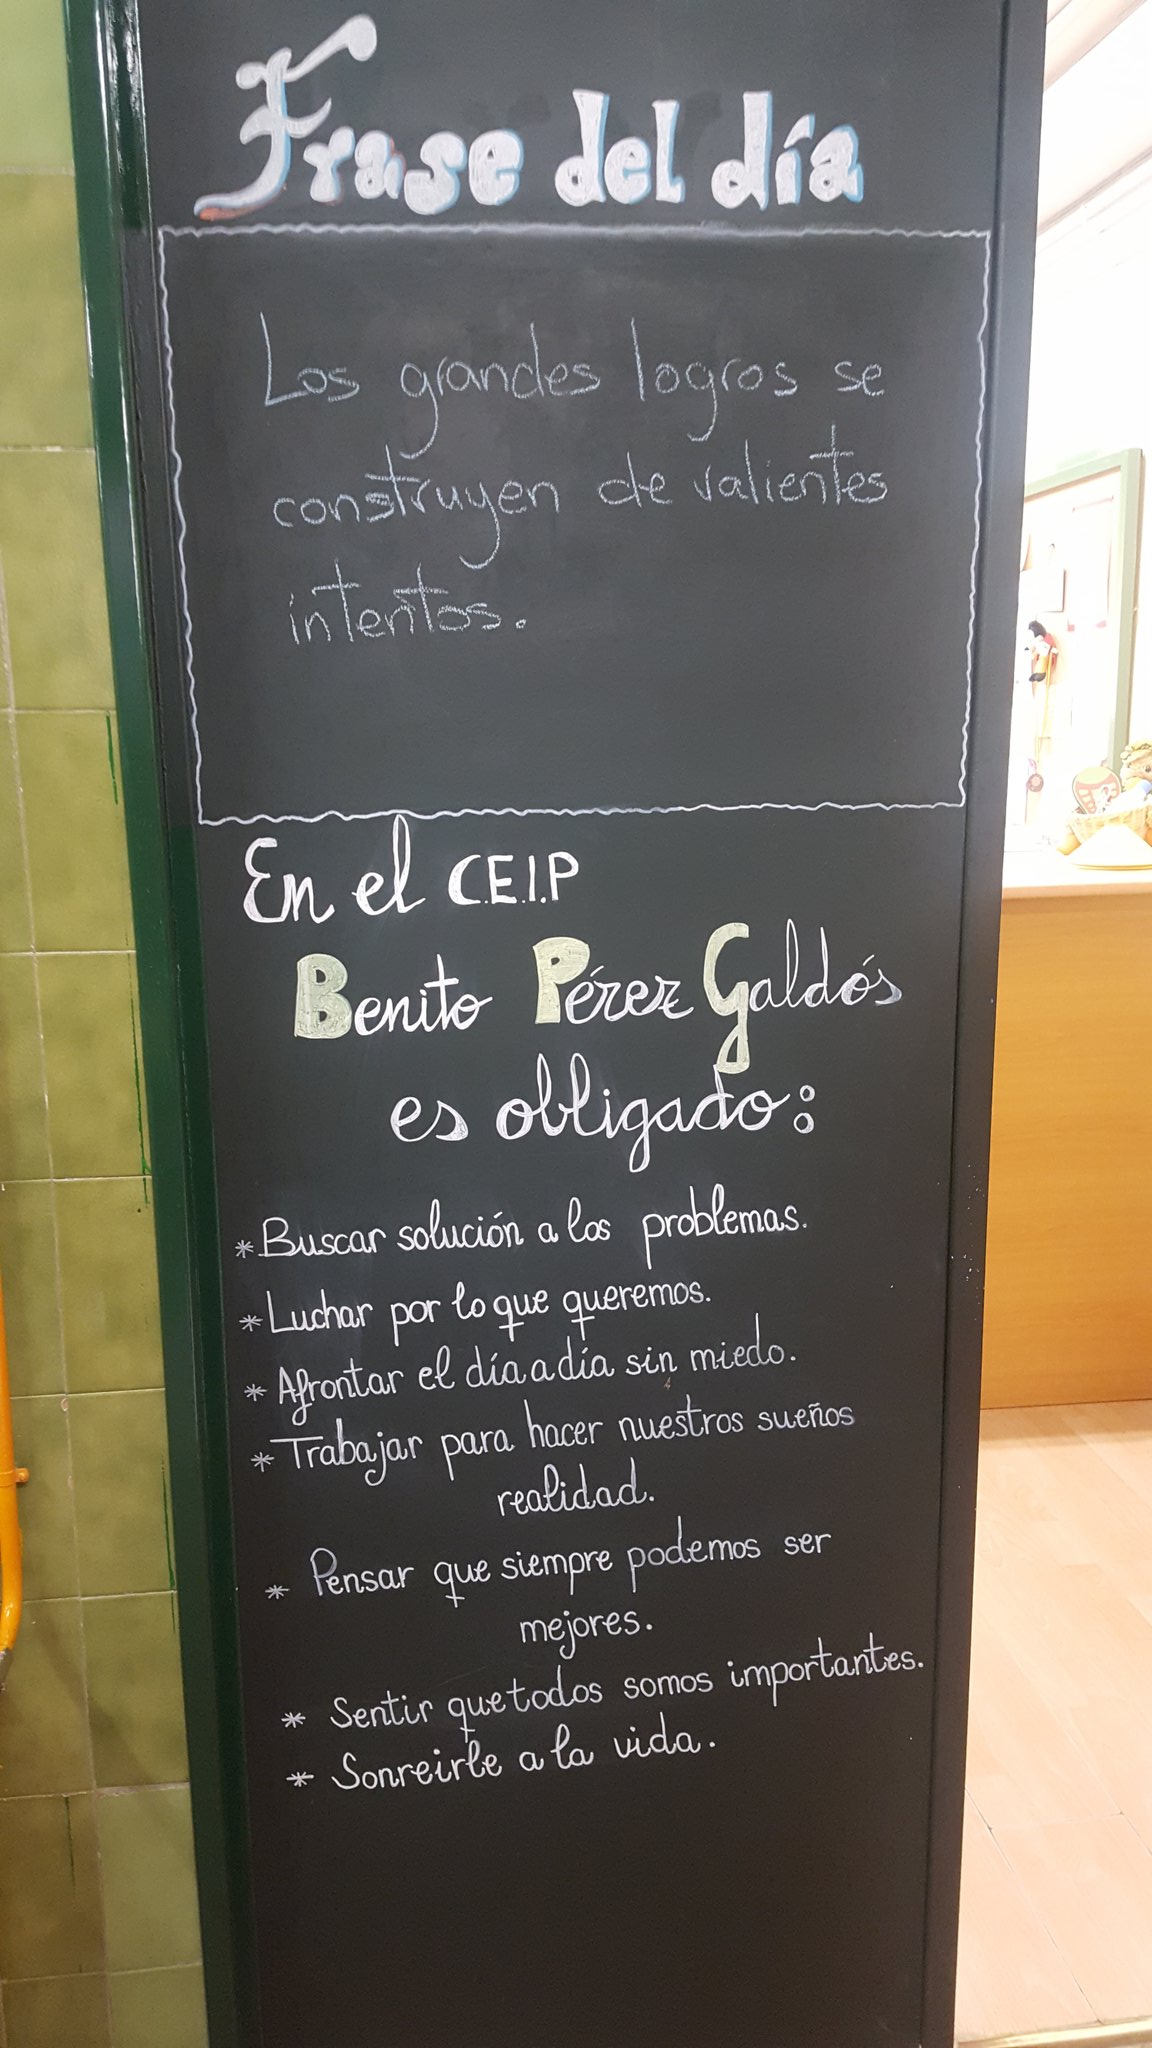 Frase del día
Los grandes logros se
construyen de valientes
intentos.
En el C.E.I.P
Benito Pérez Galdós
es obligado:
* Buscar solución a los problemas.
* Luchar por lo que queremos.
* Afrontar el día a día sin miedo.
* Trabajar para hacer nuestros sueños
realidad.
* Pensar que siempre podemos ser
mejores.
* Sentir que todos somos importantes.
* Sonreirle a la vida.